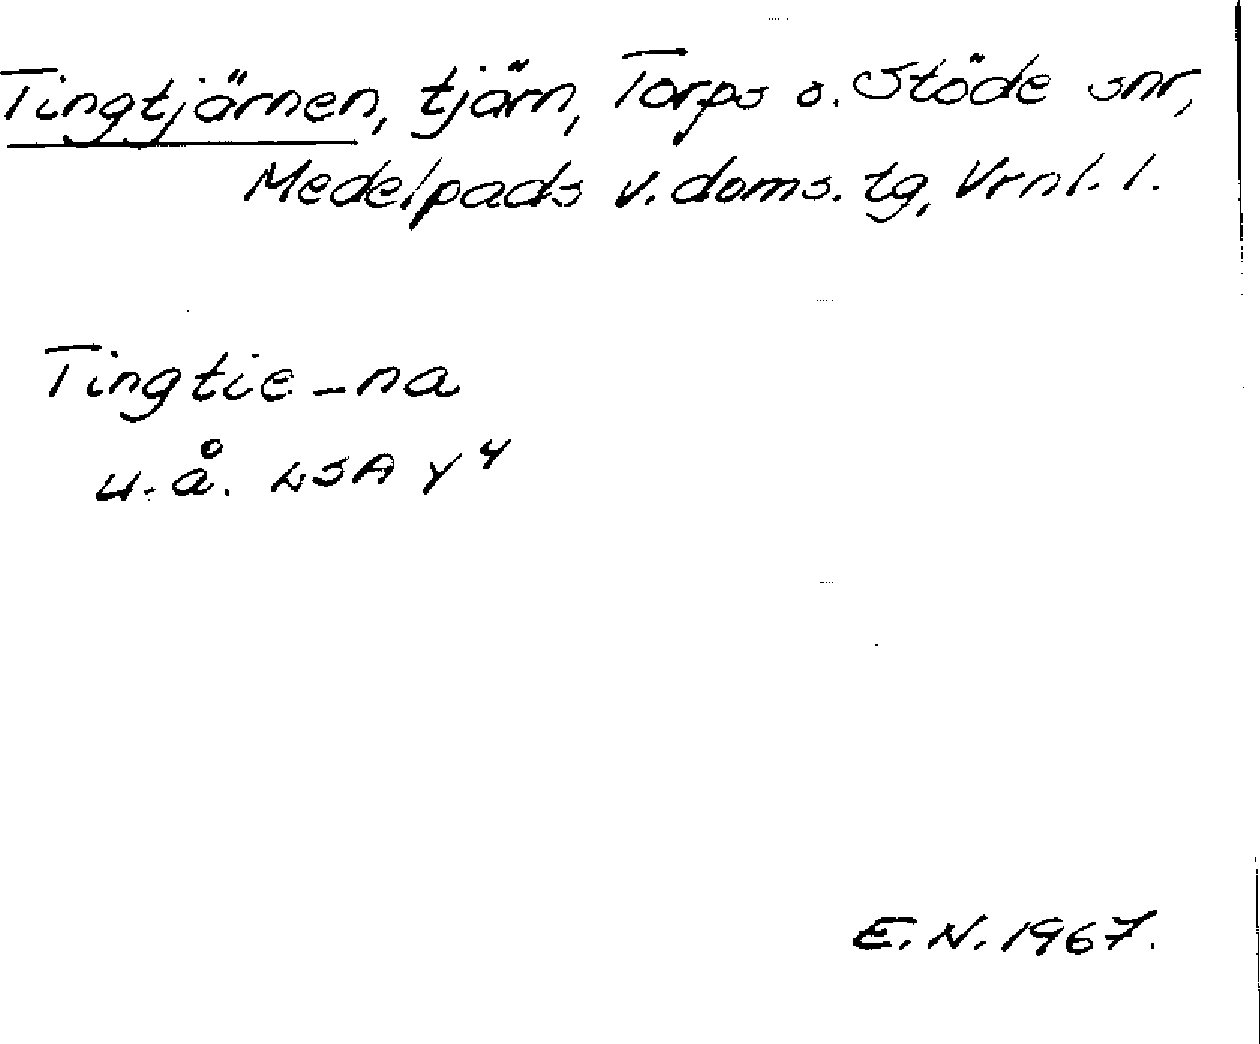 Tingtjärnen, tjärn, Torps o. Stöde snr,
Medelpads v. doms. tg, Vrnl. l.
Tingtie-na
u.å. LSA Y4
E.N. 1967.